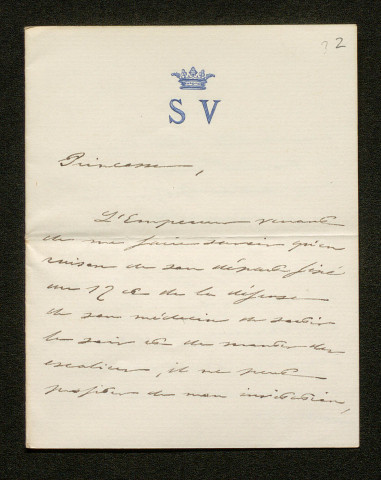 2
S V
Princesse,
L'Empereur venant
de me faire savoir qu'en
raison de son départ fixé
au 17 et de la défense
de son médecin de sortir
le soir et de monter des
escaliers, il ne peut
profiter de mon invitation,